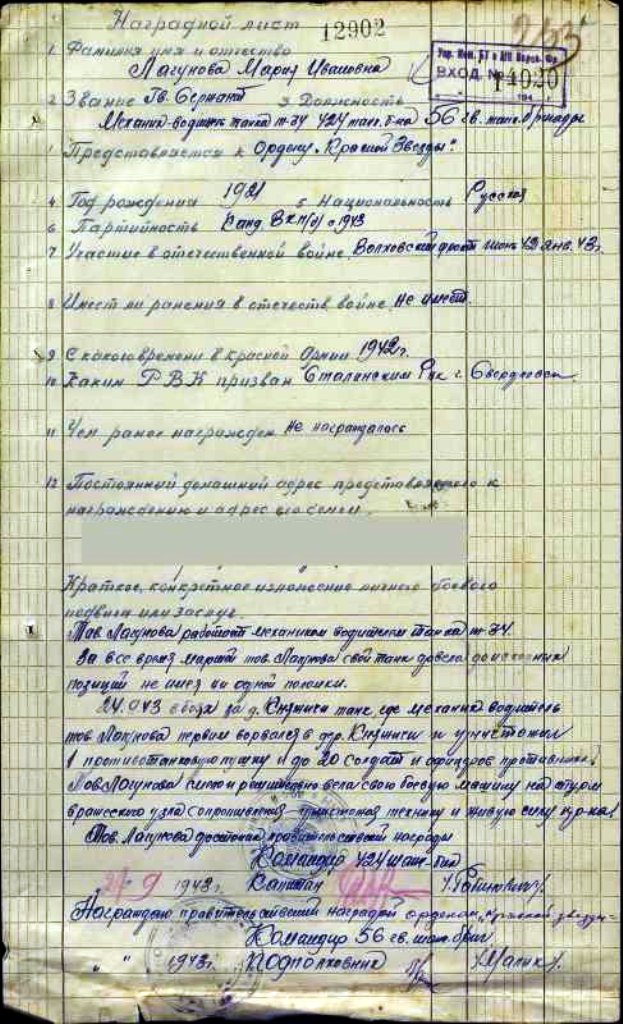 Наградной лист 12902
253
ВХОД. № 14020
1 Фамилия имя и отчество
Лагунова Мария Ивановна
2 Звание Гв. Сержант 3 Должность
Механик-водитель танка т-34 424 танк. б-на 56 гв. танк. бригады
Представляется к Ордену "Красной Звезды".
4 Год рождения 1921 5 Национальность Русская
6 Партийность Канд. ВКП(б) с 1943
7 Участие в отечественной войне. Волховский фронт июнь 42 янв. 43г.
8 Имеет ли ранения в отечеств войне не имеет.
9 С какого времени в Красной Армии 1942г.
10 Каким РВК призван Сталинским Рвк г. Свердловск
11 Чем ранее награжден не награждалась
12 Постоянный домашний адрес представляемого к
награждению и адрес его семьи.
Краткое, конкретное изложение личного боевого
подвига или заслуг.
Тов. Лагунова работает механиком водителем танка т-34.
За все время марша тов. Лагунова свой танк довела до исходных
позиций не имея ни одной поломки.
24.9.43 в боях за д. Княжичи танк, где механик водитель
тов Лагунова первым ворвался в дер. Княжичи и уничтожил
1 противотанковую пушку и до 20 солдат и офицеров противника.
Тов Лагунова смело и решительно вела свою боевую машину на штурм
вражеского узла сопротивления, уничтожая технику и живую силу пр-ка.
Тов. Лагунова достойна правительственной награды
Командир 424 танк. б-на
9 1943г. Капитан /Рабинович/.
Награждаю правительственной наградой орденом "Красной звезды"
Командир 56 гв. танк. бриг
" " 1943г. Подполковник /Малик/.